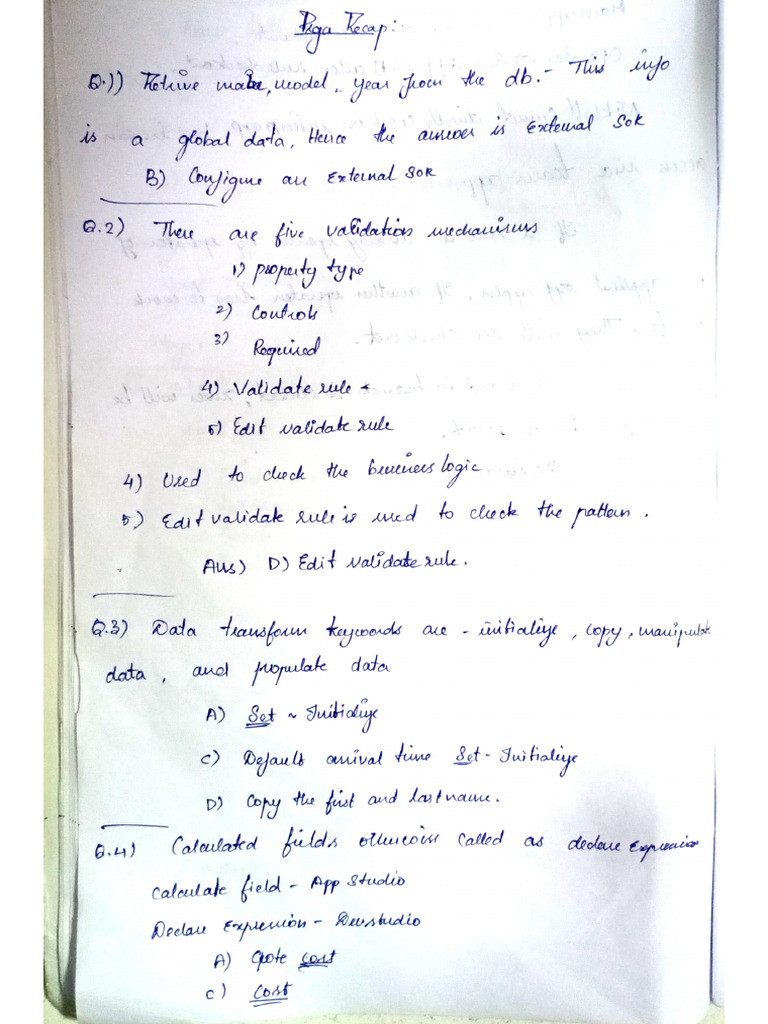 Pega Recap:
Q.1) Retrive make, model, year from the db. - This info
is a global data, Hence the answer is External SOR
B) Configure an External SOR
Q.2) There are five validation mechanisms
1) property type
2) Controls
3) Required
4) Validate rule
5) Edit validate rule
4) Used to check the business logic
5) Edit validate rule is used to check the pattern.
Ans) D) Edit validate rule.
Q.3) Data transform keywords are - initialize, copy, manipulate
data, and populate data
A) Set ~ Initialize
C) Default arrival time Set - Initialize
D) Copy the first and last name.
Q.4) Calculated fields otherwise called as declare Expression
Calculate field - App Studio
Declare Expression - Devstudio
A) Quote cost
C) Cost